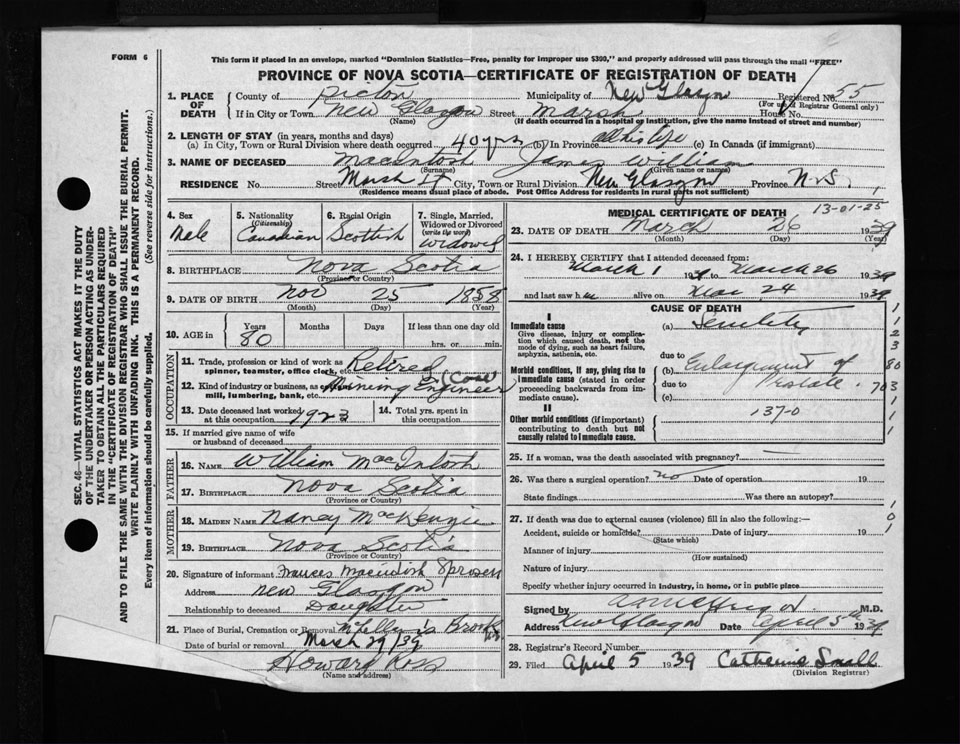 FORM 6
This form if placed in an envelope, marked "Dominion Statistics—Free, penalty for improper use $300," and properly addressed will pass through the mail "FREE"
PROVINCE OF NOVA SCOTIA—CERTIFICATE OF REGISTRATION OF DEATH
1. PLACE OF DEATH County of Pictou Municipality of New Glasgow Registered No. 55
(For use of Registrar General only)
If in City or Town New Glasgow Street Marsh House No.
(Name) (If death occurred in a hospital or institution, give the name instead of street and number)
2. LENGTH OF STAY (in years, months and days)
(a) In City, Town or Rural Division where death occurred 40 yrs (b) In Province all his life (c) In Canada (if immigrant)
3. NAME OF DECEASED MacIntosh James William
(Surname) (Given name or names)
RESIDENCE No. Street Marsh St City, Town or Rural Division New Glasgow Province N.S.
(Residence means usual place of abode. Post Office Address for residents in rural parts not sufficient)
4. Sex Male
5. Nationality (Citizenship) Canadian
6. Racial Origin Scottish
7. Single, Married, Widowed or Divorced (write the word) Widowed
8. BIRTHPLACE Nova Scotia
(Province or Country)
9. DATE OF BIRTH Nov 25 1858
(Month) (Day) (Year)
10. AGE in Years Months Days If less than one day old
80 hrs. or min.
OCCUPATION
11. Trade, profession or kind of work as spinner, teamster, office clerk, etc. Retired
12. Kind of industry or business, as mill, lumbering, bank, etc. Mining Engineer (Coal
13. Date deceased last worked at this occupation 1923
14. Total yrs. spent in this occupation
15. If married give name of wife or husband of deceased
FATHER
16. NAME William MacIntosh
17. BIRTHPLACE Nova Scotia
(Province or Country)
MOTHER
18. MAIDEN NAME Nancy MacKenzie
19. BIRTHPLACE Nova Scotia
(Province or Country)
20. Signature of informant Frances Macintosh
Address New Glasgow
Relationship to deceased Daughter
21. Place of Burial, Cremation or Removal Brook
Date of burial or removal March 29/39
Howard Ross
(Name and address)
MEDICAL CERTIFICATE OF DEATH 13-01-25
23. DATE OF DEATH March 26 1939
(Month) (Day) (Year)
24. I HEREBY CERTIFY that I attended deceased from:
March 1 1939 to March 26 1939
and last saw him alive on Mar 24 1939
CAUSE OF DEATH
I
Immediate cause
Give disease, injury or complication which caused death, not the mode of dying, such as heart failure, asphyxia, asthenia, etc.
(a) Senility
due to
Morbid conditions, if any, giving rise to immediate cause (stated in order proceeding backwards from immediate cause).
(b) Enlargement of
due to Prostate
(c)
II
Other morbid conditions (if important) contributing to death but not causally related to immediate cause.
137-0
25. If a woman, was the death associated with pregnancy? —
26. Was there a surgical operation? no Date of operation 19
State findings Was there an autopsy?
27. If death was due to external causes (violence) fill in also the following:—
Accident, suicide or homicide? Date of injury 19
(State which)
Manner of injury
(How sustained)
Nature of injury
Specify whether injury occurred in industry, in home, or in public place
Signed by M.D.
Address New Glasgow Date April 5th 1939
28. Registrar's Record Number
29. Filed April 5 1939 Catherine Small
(Division Registrar)
SEC. 46—VITAL STATISTICS ACT MAKES IT THE DUTY
OF THE UNDERTAKER OR PERSON ACTING AS UNDERTAKER
TO OBTAIN ALL THE PARTICULARS REQUIRED
IN THE "CERTIFICATE OF REGISTRATION OF DEATH"
AND TO FILE THE SAME WITH THE DIVISION REGISTRAR WHO SHALL ISSUE THE BURIAL PERMIT.
WRITE PLAINLY WITH UNFADING INK. THIS IS A PERMANENT RECORD.
Every item of information should be carefully supplied. (See reverse side for instructions.)